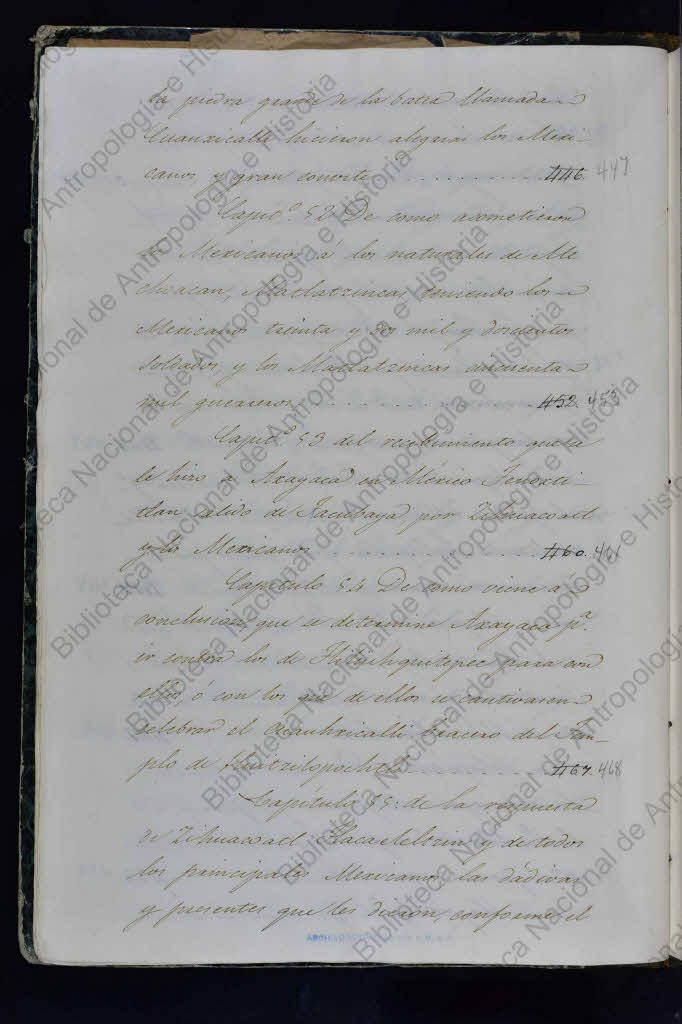 la piedra grande de la batea llamada
Cuauxicalli hicieron alegrias los Mexi-
canos y gran convite . . . . . . . . . . . 446. 447
Capit.º 52 De como acometieron
los Mexicanos á los naturales de Me
choacan, Matlatzincas, teniendo los
Mexicanos treinta y dos mil y doscientos
soldados, y los Matlatzincas cincuenta
mil guerreros . . . . . . . . . . . . 452. 453
Capit.º 53 del recibimiento que se
le hizo a Axayaca en México Tenoxti-
tlan, salido de Tacubaya por Zihuacoatl
y los Mexicanos . . . . . . . . . . . . 460. 461
Capítulo 54 De como viene a
conclusion que se determine Axayaca p.ª
ir contra los de Tliliuhquitepec para con
ellos ó con los que de ellos se cautivasen
celebrar el Cuauhxicalli bracero del Tem-
plo de Huitzilopochtli . . . . . . . . . 467. 468
Capítulo 55: de la respuesta
de Zihuacoatl Tlacaeleltzin y de todos
los principales Mexicanos las dádivas
y presentes que les dieron, conforme el
Biblioteca Nacional de Antropología e Historia